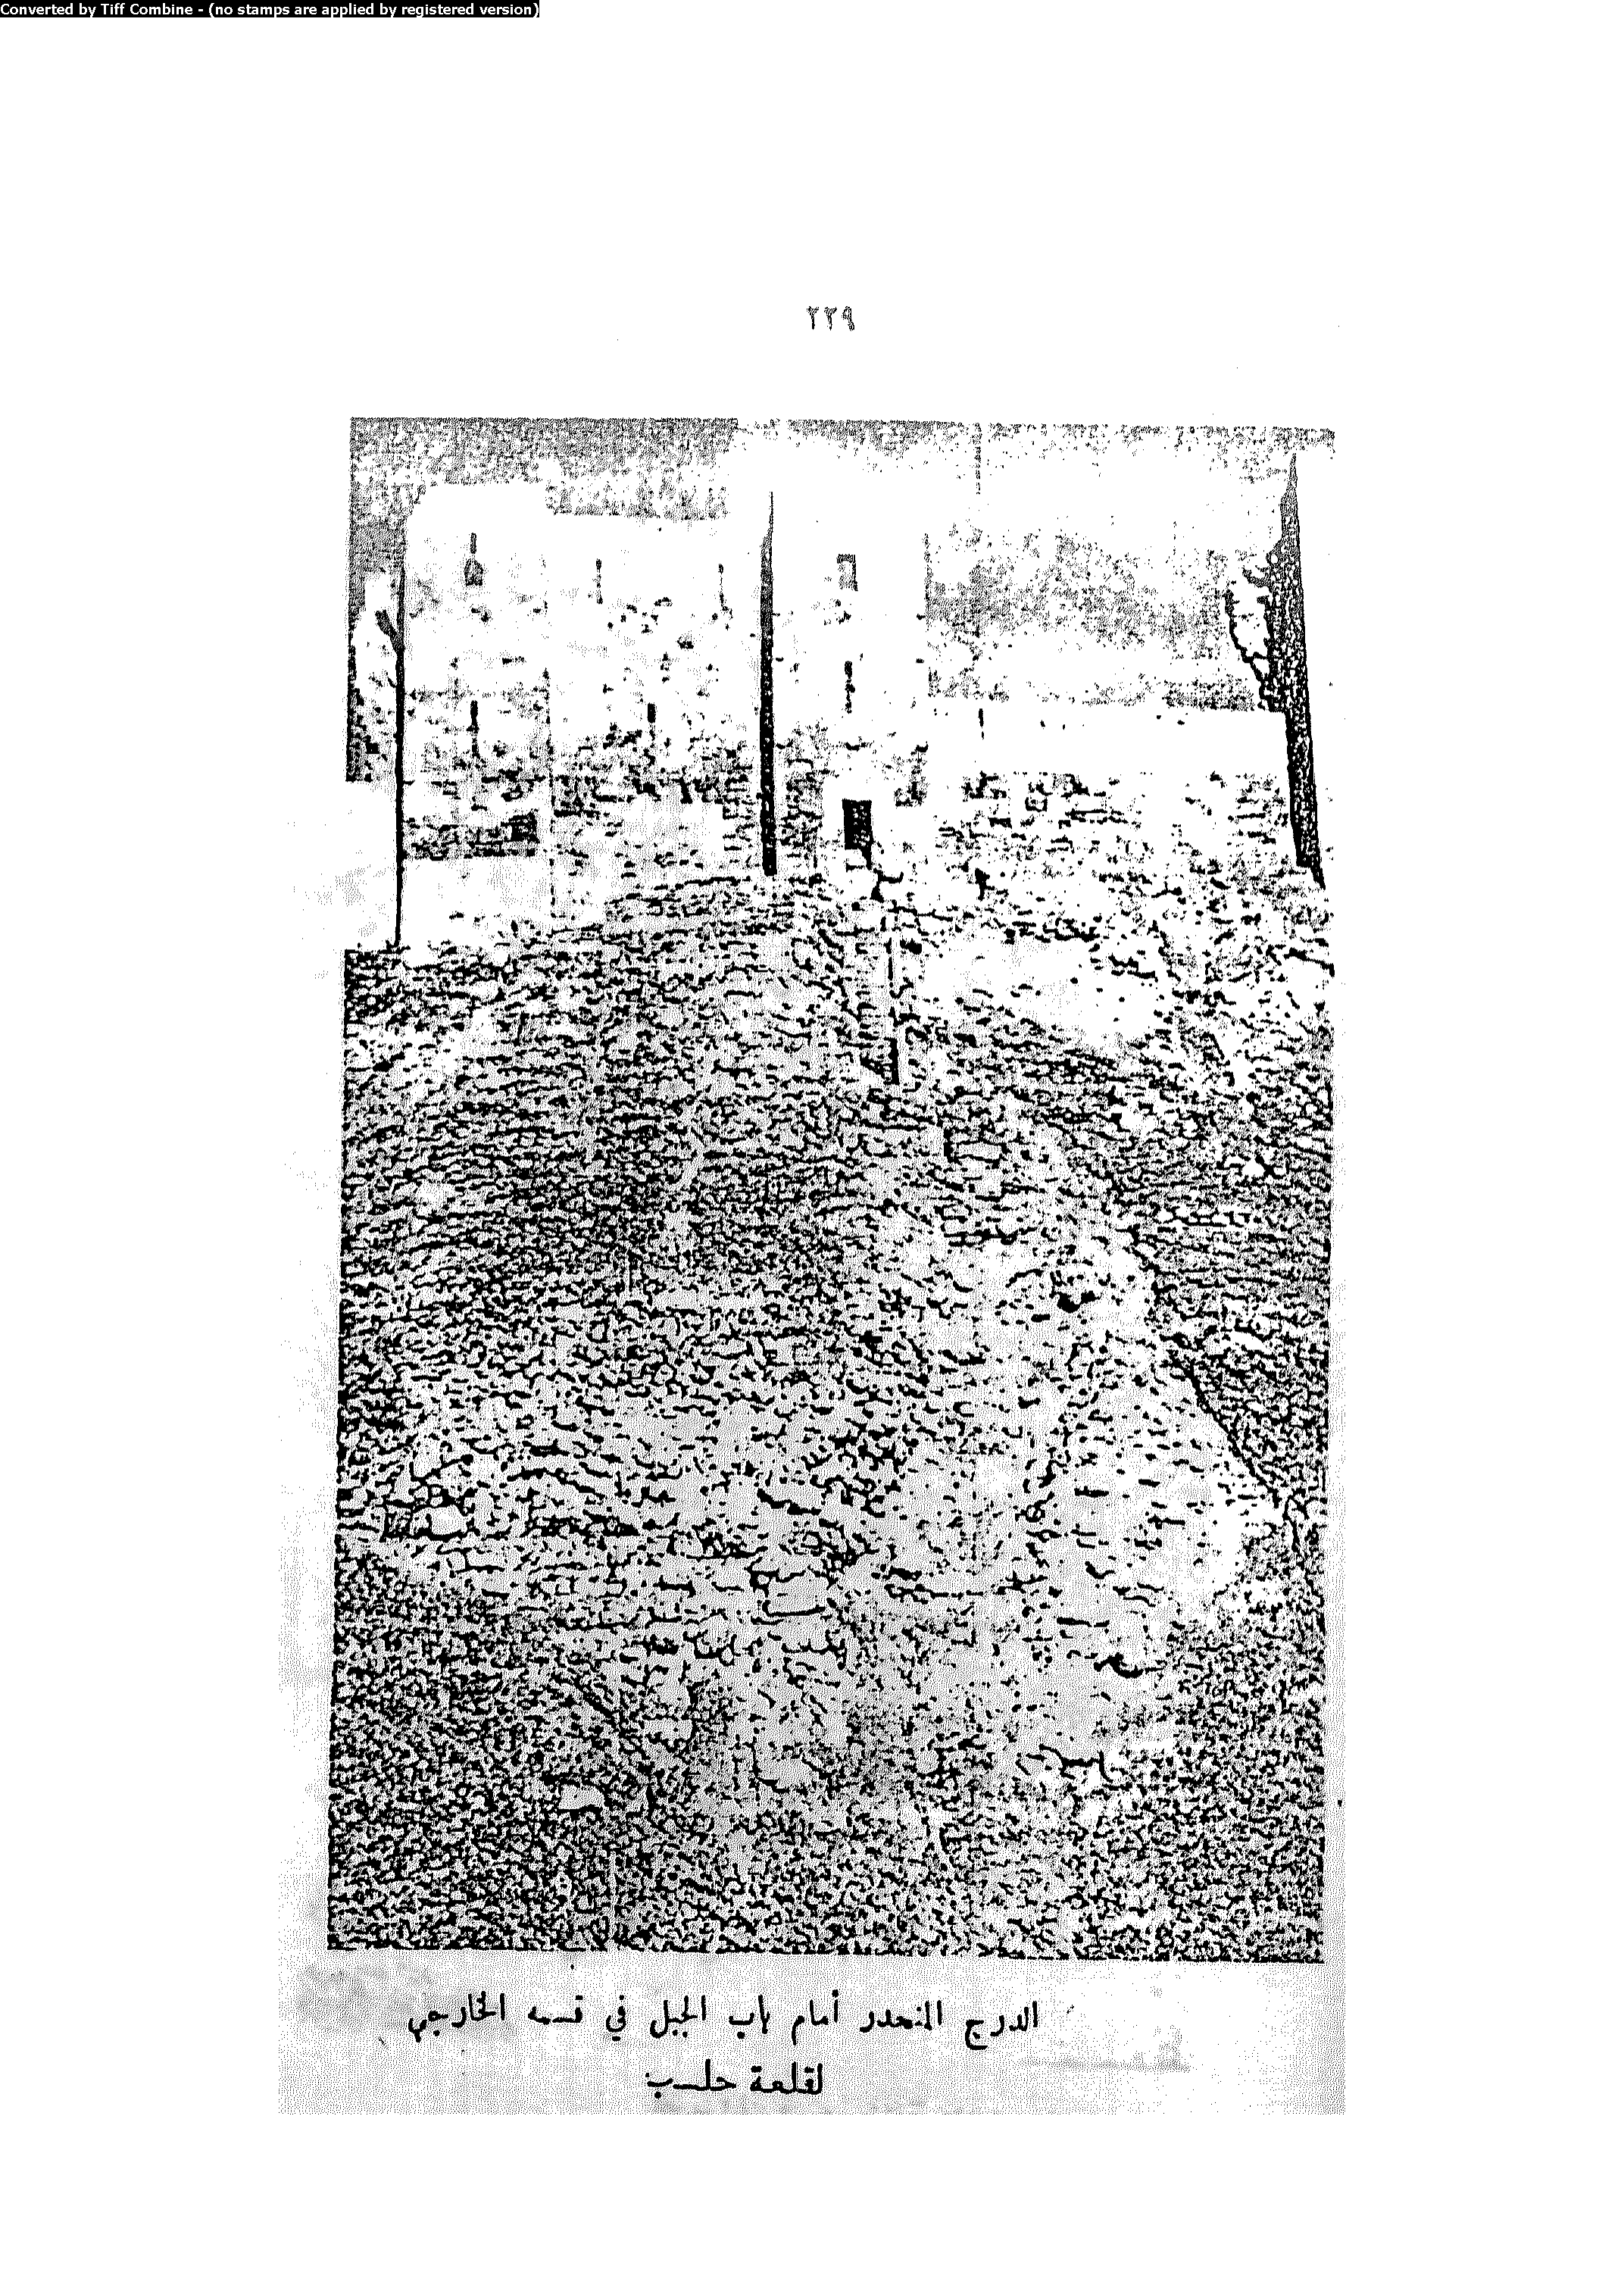 Converted by Tiff Combine - (no stamps are applied by registered version)
٢٣٩
الدرج المنحدر أمام باب الجبل في قسمه الخارجي
لقلعة حلب